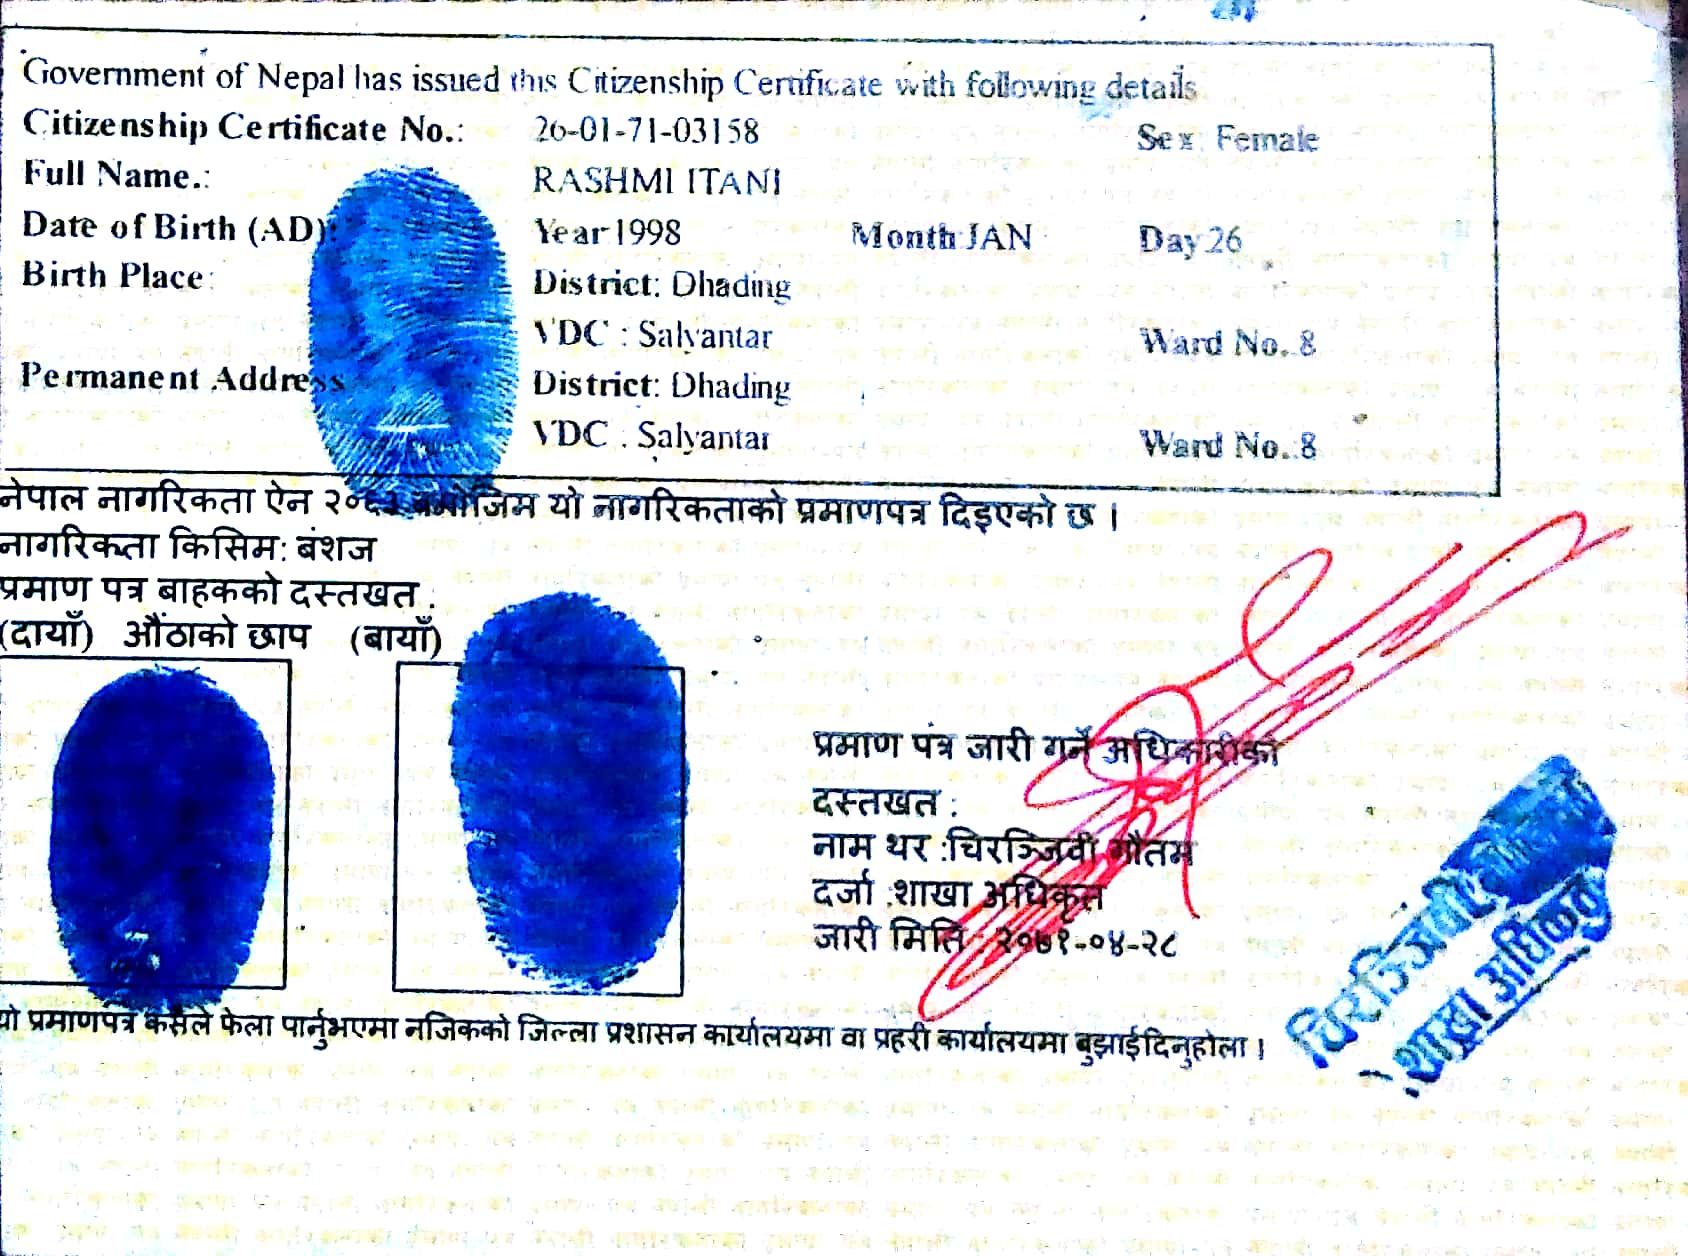 Government of Nepal has issued this Citizenship Certificate with following details
Citizenship Certificate No.: 26-01-71-03158 Sex: Female
Full Name.: RASHMI ITANI
Date of Birth (AD): Year 1998 Month JAN Day 26
Birth Place: District: Dhading
VDC : Salyantar Ward No. 8
Permanent Address District: Dhading
VDC : Salyantar Ward No.:8
नेपाल नागरिकता ऐन २०६३ बमोजिम यो नागरिकताको प्रमाणपत्र दिइएको छ ।
नागरिकता किसिम: बंशज
प्रमाण पत्र बाहकको दस्तखत :
(दायाँ) औंठाको छाप (बायाँ)
प्रमाण पत्र जारी गर्ने अधिकारीको
दस्तखत :
नाम थर :चिरञ्जिवी गौतम
दर्जा :शाखा अधिकृत
जारी मिति : २०७१-०४-२८
यो प्रमाणपत्र कसैले फेला पार्नुभएमा नजिकको जिल्ला प्रशासन कार्यालयमा वा प्रहरी कार्यालयमा बुझाईदिनुहोला ।
चिरञ्जिवी गौतम
शाखा अधिकृत